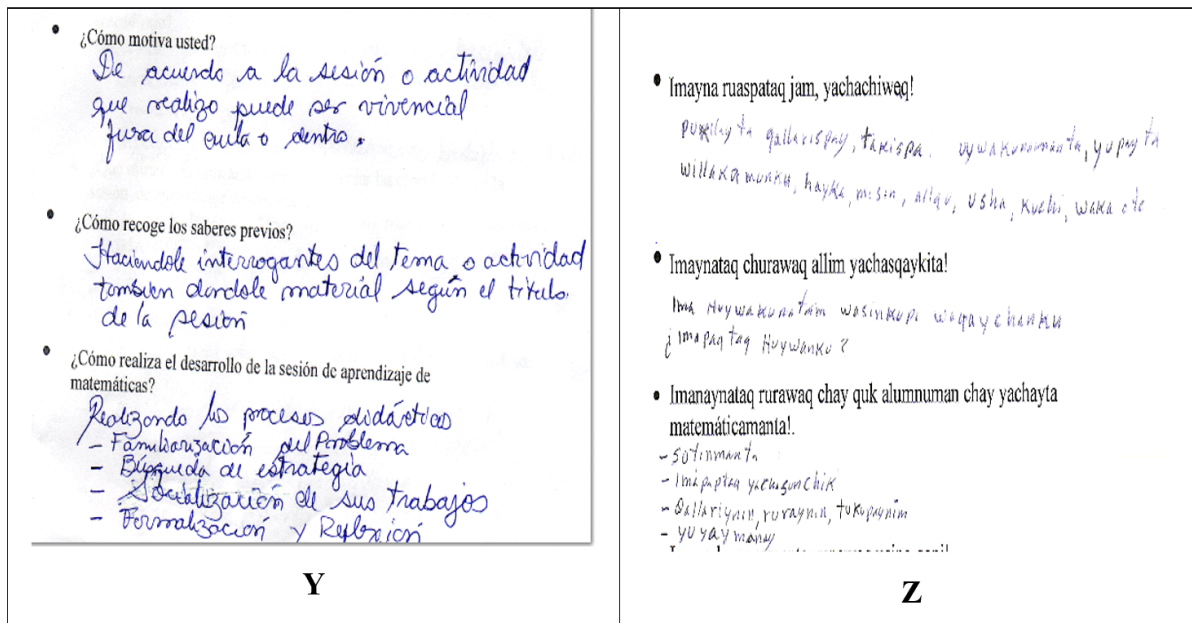 • ¿Cómo motiva usted?
De acuerdo a la sesión o actividad
que realizo puede ser vivencial
fura del aula o dentro.
• ¿Cómo recoge los saberes previos?
Haciendole interrogantes del tema o actividad
tambien dandole material según el titulo
de la sesión
• ¿Cómo realiza el desarrollo de la sesión de aprendizaje de
matemáticas?
Realizando los procesos didácticos
- Familiarización del Problema
- Búsqueda de estrategia
- Socialización de sus trabajos
- Formalización y Reflexión
Y
• Imayna ruaspataq jam, yachachiweq!
pukllayta qallarispay, takispa. uywakunamanta, yupayta
willakamunku, hayka, misin, allqu, usha, kuchi, waka etc
• Imaynataq churawaq allim yachasqaykita!
Ima Huywakunatam wasinkupi waqaychanku
¿Imapaq taq Huywanku?
• Imanaynataq rurawaq chay quk alumnuman chay yachayta
matemáticamanta!.
- Sutinmanta
- yachasunchik
- Qallariynin, ruraynin, tukupaynim
- yuyaymanay
Z